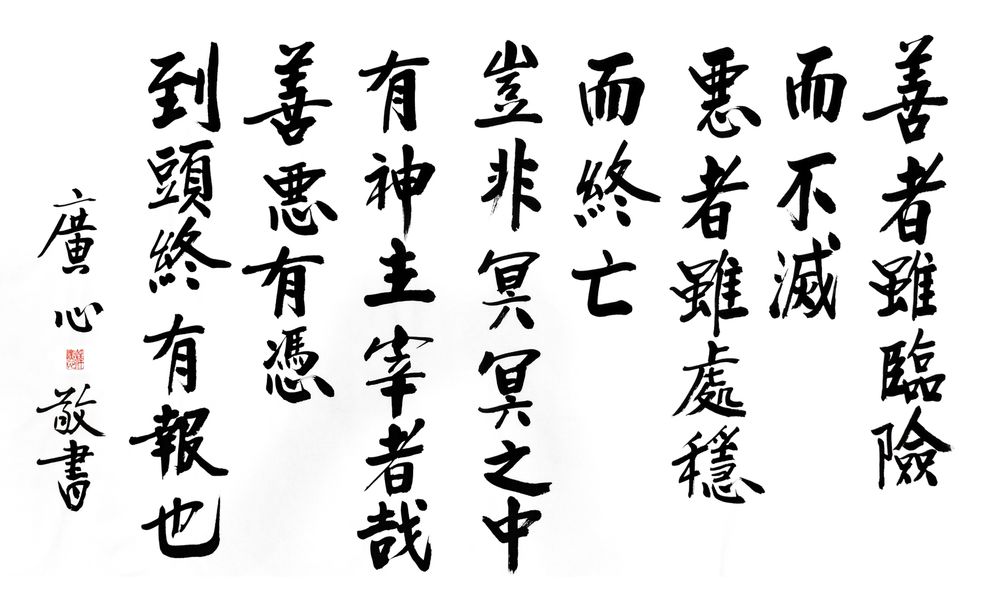 善者雖臨險
而不滅
惡者雖處穩
而終亡
豈非冥冥之中
有神主宰者哉
善惡有憑
到頭終有報也
廣心
敬書